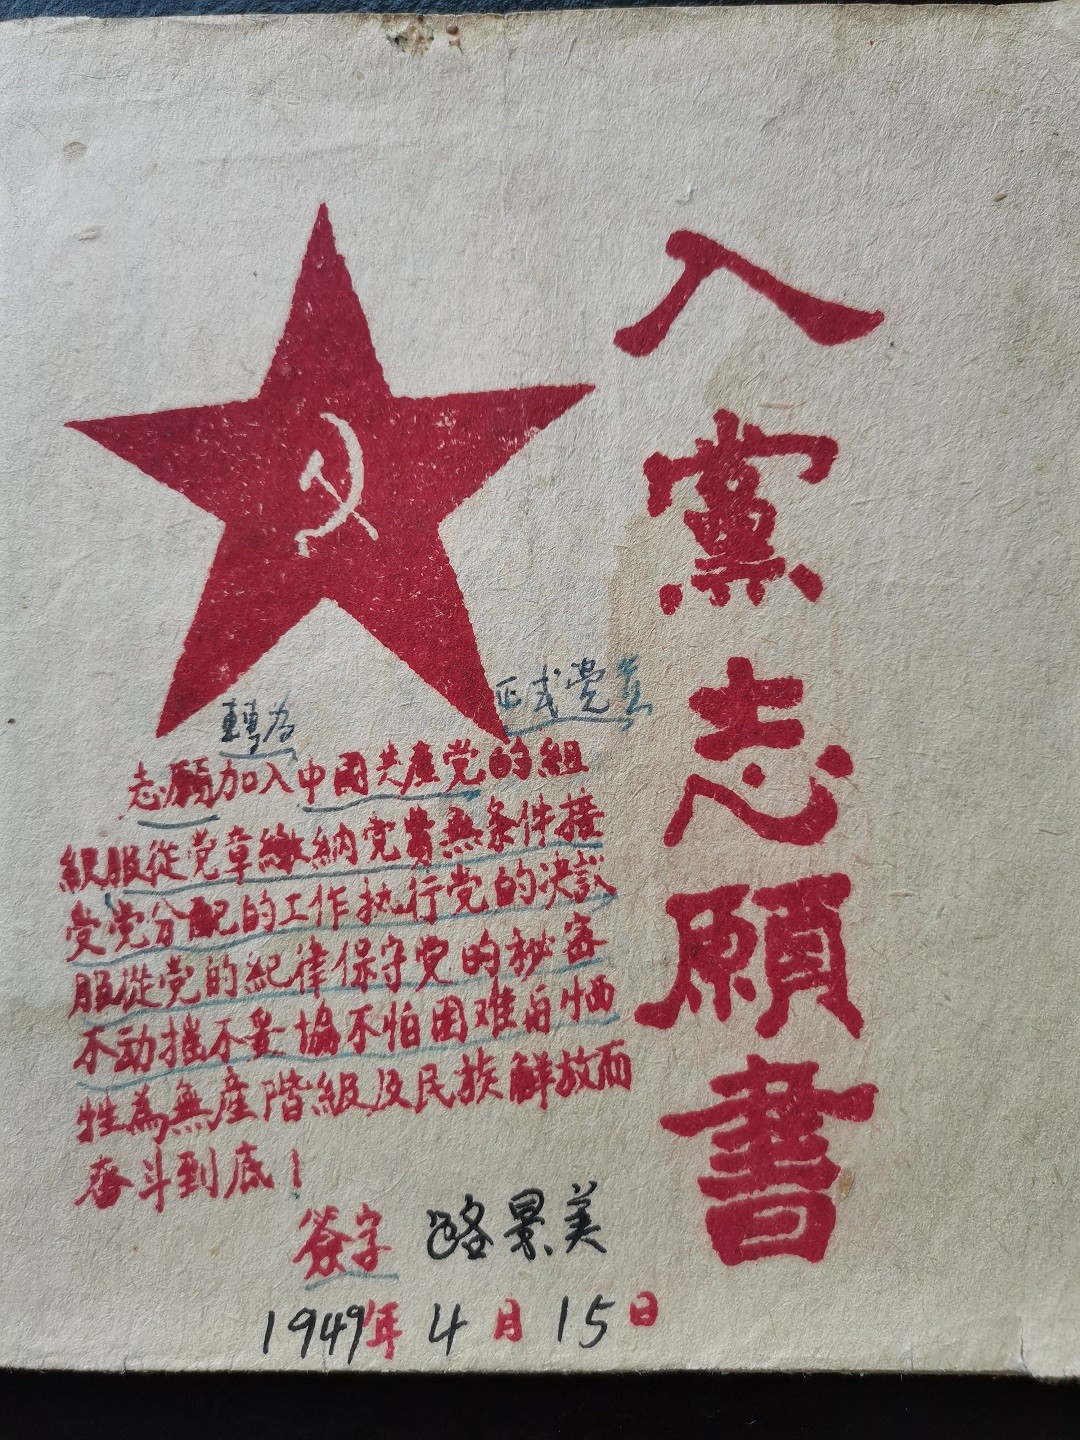 入黨志願書
轉为
正式党员
志願加入中國共產党的組
級服從党章繳納党費無条件接
受党分配的工作执行党的决議
服從党的紀律保守党的秘密
不动搖不妥協不怕困难自牺
牲為無產階級及民族解放而
奋斗到底！
簽字 路景美
1949年4月15日